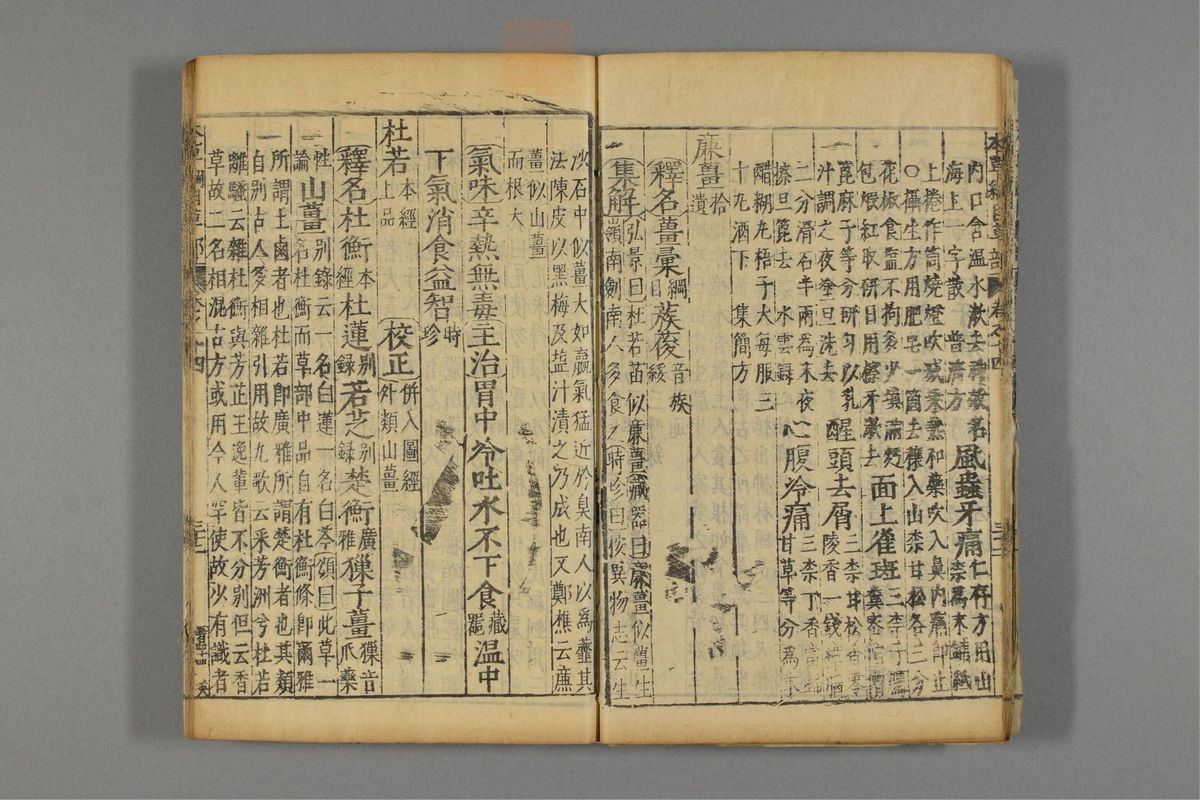 本草綱目草部 卷之十四
內口含温水漱去神效名
海上一字散 普濟方
風蟲牙痛仁存方用山
柰爲末鋪紙
上捲作筒燒燈吹滅乘熱和藥吹入鼻內痛即止
○攝生方用肥皂一箇去穰入山柰甘松各三分
花椒食鹽不拘多少填滿麪
包煅紅取研日用擦牙漱去
面上雀斑三柰子鷹
糞密陀僧
蓖麻子等分研勻以乳
汁調之夜塗旦洗去
醒頭去屑三柰甘松香零
陵香一錢樟腦
二分滑石半兩爲末夜
擦旦篦去 水雲錄
心腹冷痛三柰丁香當歸
甘草等分爲末
醋糊丸梧子大每服三
十丸酒下 集簡方
廉薑拾遺
釋名薑彙綱目 族葰音族綏
集解弘景曰杜若苗似廉薑藏器曰廉薑似薑生
嶺南劍南人多食之時珍曰按異物志云生
沙石中似薑大如蠃氣猛近於臭南人以爲虀其
法陳皮以黑梅及鹽汁漬之乃成也又鄭樵云廉
薑似山薑
而根大
氣味辛熱無毒主治胃中冷吐水不下食藏器温中
下氣消食益智時珍
杜若本經上品 校正併入圖經外類山薑
釋名杜衡本經杜蓮別錄若芝別錄楚衡廣雅㺐子薑㺐音爪藥
性論山薑別錄云一名白蓮一名白芩頌曰此草一
名杜衡而草部中品自有杜衡條即爾雅
所謂土鹵者也杜若即廣雅所謂楚衡者也其類
自別古人多相雜引用故九歌云采芳洲兮杜若
離騷云雜杜衡與芳芷王逸輩皆不分別但云香
草故二名相混古方或用今人罕使故少有識者